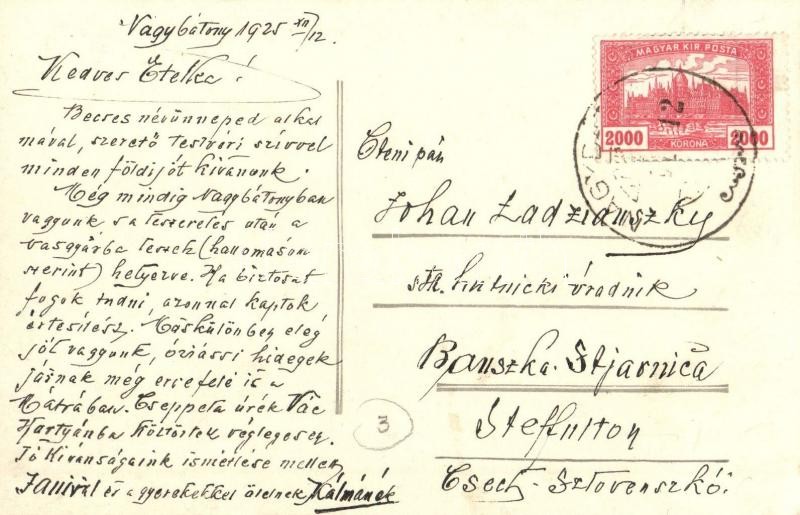 Nagybátony 1925 XII/12.
Kedves Etelka!
Becses névünneped alkal
mával, szerető testvéri szívvel
minden földi jót kívánunk.
Még mindig Nagybátonyban
vagyunk s a leszerelés után a
vasgyárba teszek (ha nomásom
szerint) helyezve. Ha biztosat
fogok tudni, azonnal kaptok
értesítész. Máskülönben elég
jól vagyunk, óriássi hidegek
járnak még errefelé is a
Mátrában. Cseppeta úrék Vác
Hartyánba költöztek véglegesen.
Jó kívánságaink ismétlése mellett
Janival és a gyerekekkel ölelnek Kálmánék
MAGYAR KIR. POSTA
2000 KORONA 2000
12
Cteni pán
Johan Ladzianszky
št. hutnicki úradnik
Banszka-Stjavnica
Steffulton
Csech-Sztovenszkó.
3